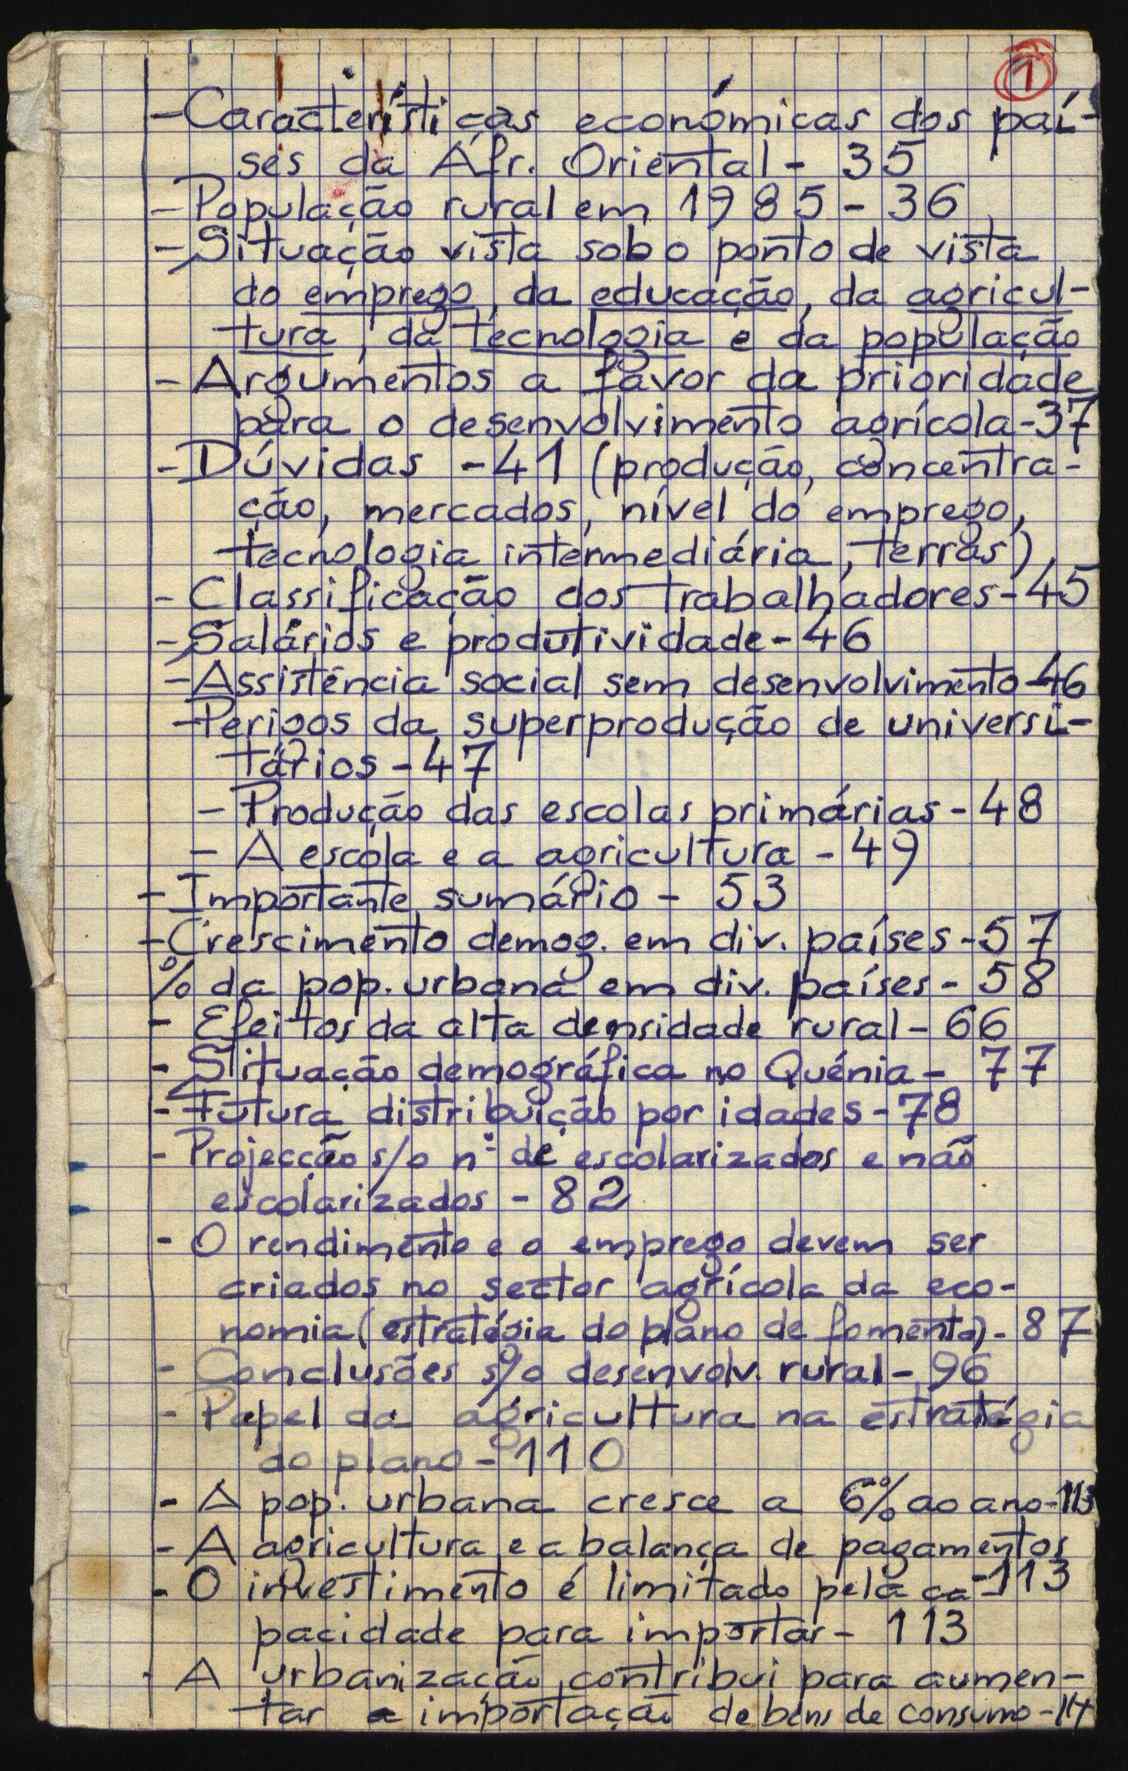 1
- Características económicas dos paí-
ses da Áfr. Oriental - 35
- População rural em 1985 - 36
- Situação vista sob o ponto de vista
do emprego, da educação, da agricul-
tura, da tecnologia e da população
- Argumentos a favor da prioridade
para o desenvolvimento agrícola - 37
- Dúvidas - 41 (produção, concentra-
ção, mercados, nível do emprego,
tecnologia intermediária, terras)
- Classificação dos trabalhadores - 45
- Salários e produtividade - 46
- Assistência social sem desenvolvimento - 46
- Perigos da superprodução de universi-
tários - 47
- Produção das escolas primárias - 48
- A escola e a agricultura - 49
- Importante sumário - 53
- Crescimento demog. em div. países - 57
% da pop. urbana em div. países - 58
- Efeitos da alta densidade rural - 66
- Situação demográfica no Quénia - 77
- Futura distribuição por idades - 78
- Projecção s/o nº de escolarizados e não
escolarizados - 82
- O rendimento e o emprego devem ser
criados no sector agrícola da eco-
nomia (estratégia do plano de fomento) - 87
- Conclusões s/o desenvolv. rural - 96
- Papel da agricultura na estratégia
do plano - 110
- A pop. urbana cresce a 6% ao ano - 113
- A agricultura e a balança de pagamentos
- O investimento é limitado pela ca- - 113
pacidade para importar - 113
- A urbanização contribui para aumen-
tar a importação de bens de consumo - 114